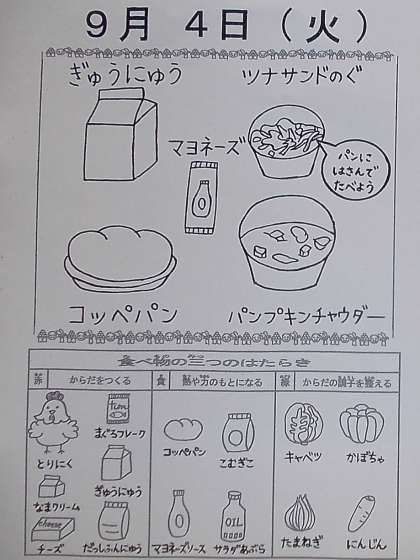 9月 4日(火)
ぎゅうにゅう
ツナサンドのぐ
マヨネーズ
パンに
はさんで
たべよう
コッペパン
パンプキンチャウダー
食べ物の三つのはたらき
赤 からだをつくる
黄 熱や力のもとになる
緑 からだの調子を整える
とりにく
tuna
まぐろフレーク
なまクリーム
ぎゅうにゅう
cheese
チーズ
だっしふんにゅう
コッペパン
こむぎこ
マヨネーズソース
OIL
サラダあぶら
キャベツ
かぼちゃ
たまねぎ
にんじん